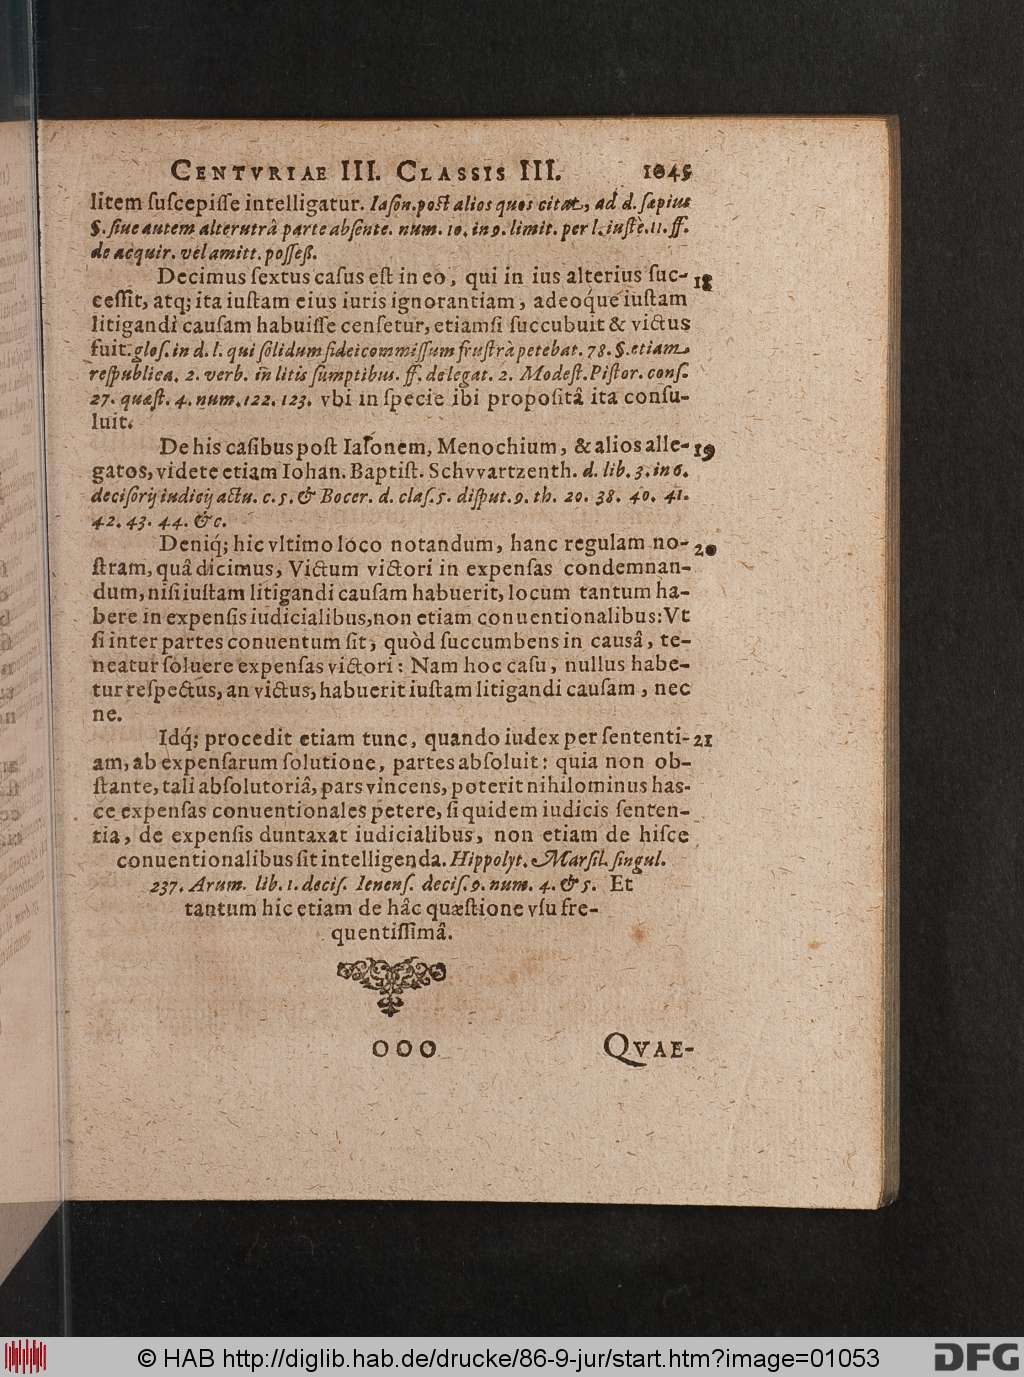 CENTVRIAE III. CLASSIS III. 1045
litem ſuſcepiſſe intelligatur. Iaſon. poſt alios quos citat, ad d. ſæpius
§. ſiue autem alterutrâ parte abſente. num. 10. in 9. limit. per l. iuſtè. 11. ff.
de acquir. vel amitt. poſſeſſ.
Decimus ſextus caſus eſt in eo, qui in ius alterius ſuc- 18
ceſſit, atq; ita iuſtam eius iuris ignorantiam, adeoq́ue iuſtam
litigandi cauſam habuiſſe cenſetur, etiamſi ſuccubuit & victus
fuit. gloſ. in d. l. qui ſolidum fideicommiſſum fruſtrà petebat. 78. §. etiam
reſpublica. 2. verb. in litis ſumptibus. ff. de legat. 2. Modeſt. Piſtor. conſ.
27. quæſt. 4. num. 122. 123. vbi in ſpecie ibi propoſitâ ita conſu-
luit.
De his caſibus poſt Iaſonem, Menochium, & alios alle- 19
gatos, videte etiam Iohan. Baptiſt. Schvvartzenth. d. lib. 3. in 6.
deciſorij iudicij actu. c. 5. & Bocer. d. claſ. 5. diſput. 9. th. 20. 38. 40. 41.
42. 43. 44. &c.
Deniq́; hic vltimo loco notandum, hanc regulam no- 20
ſtram, quâ dicimus, Victum victori in expenſas condemnan-
dum, niſi iuſtam litigandi cauſam habuerit, locum tantum ha-
bere in expenſis iudicialibus, non etiam conuentionalibus: Vt
ſi inter partes conuentum ſit, quòd ſuccumbens in cauſâ, te-
neatur ſoluere expenſas victori: Nam hoc caſu, nullus habe-
tur reſpectus, an victus, habuerit iuſtam litigandi cauſam, nec
ne.
Idq́; procedit etiam tunc, quando iudex per ſententi- 21
am, ab expenſarum ſolutione, partes abſoluit: quia non ob-
ſtante, tali abſolutoriâ, pars vincens, poterit nihilominus has-
ce expenſas conuentionales petere, ſi quidem iudicis ſenten-
tia, de expenſis duntaxat iudicialibus, non etiam de hiſce
conuentionalibus ſit intelligenda. Hippolyt. Marſil. ſingul.
237. Arum. lib. 1. deciſ. Ienenſ. deciſ. 9. num. 4. & 5. Et
tantum hic etiam de hâc quæſtione vſu fre-
quentiſſimâ.
OOO QVAE-
© HAB http://diglib.hab.de/drucke/86-9-jur/start.htm?image=01053 DFG